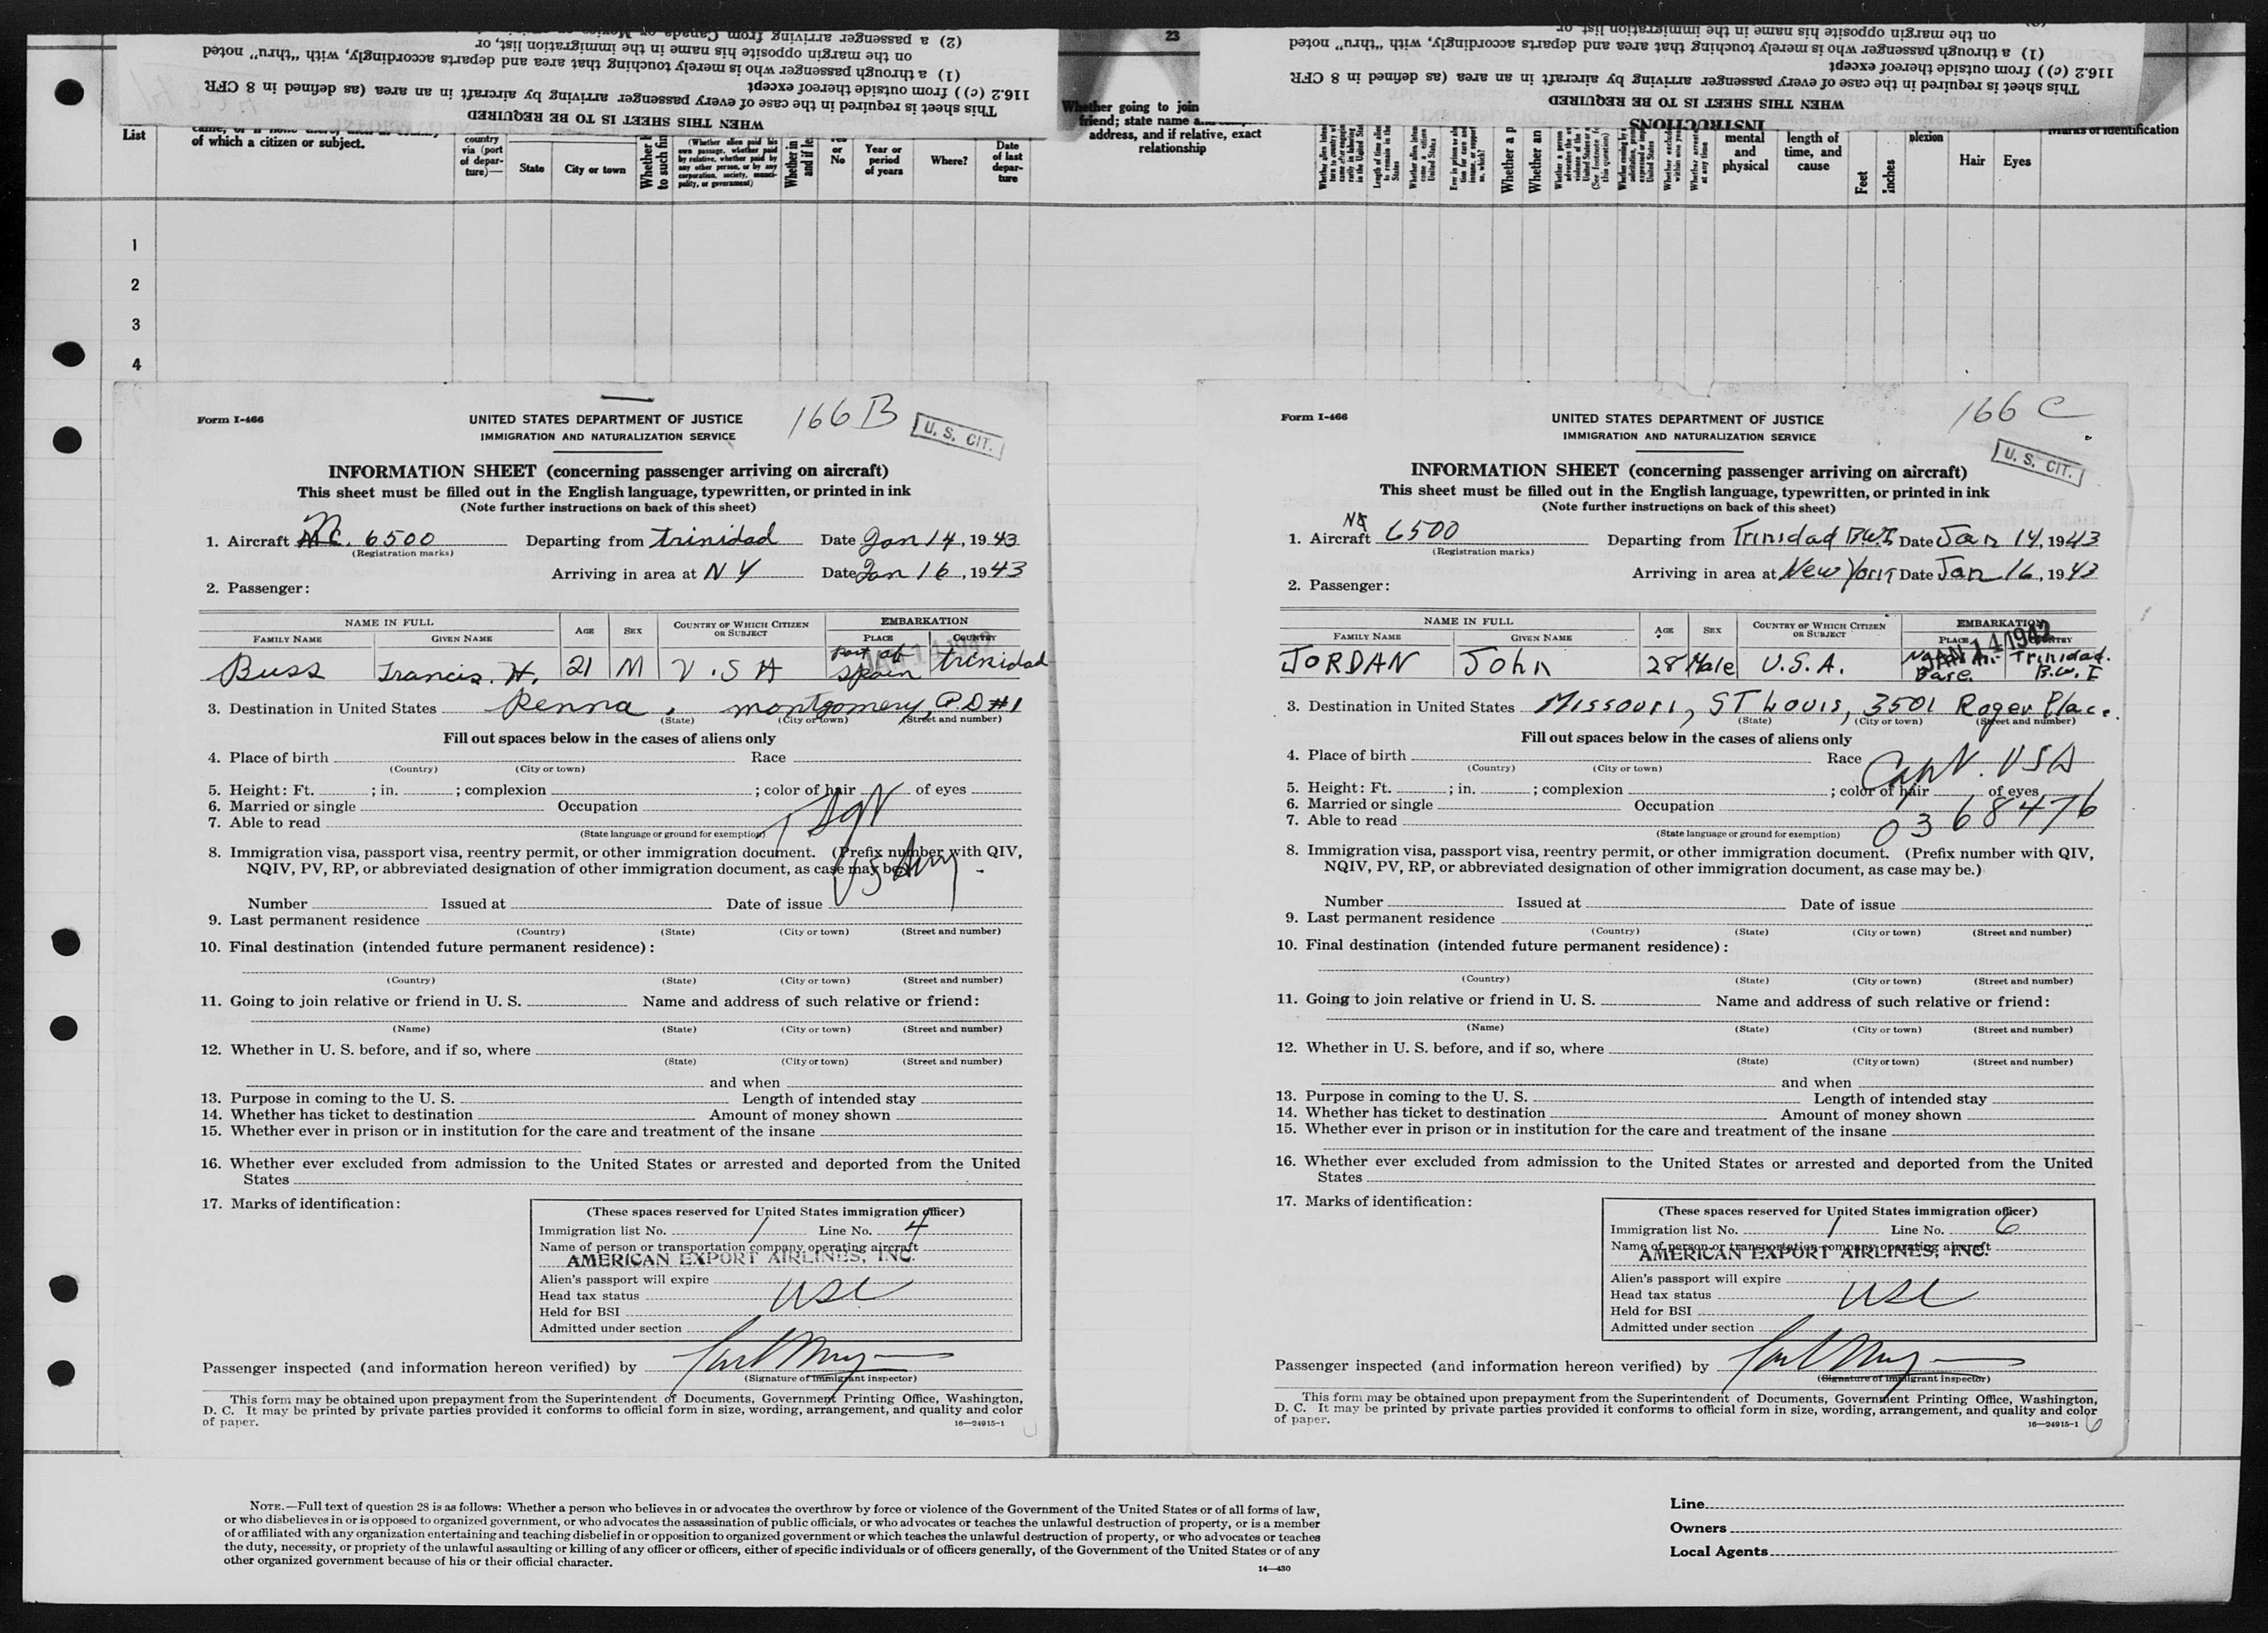 (2) a passenger arriving from Canada or Mexico
on the margin opposite his name in the immigration list, or
(1) a through passenger who is merely touching that area and departs accordingly, with "thru" noted
116.2 (c)) from outside thereof except
This sheet is required in the case of every passenger arriving by aircraft in an area (as defined in 8 CFR
WHEN THIS SHEET IS TO BE REQUIRED
23
on the margin opposite his name in the immigration list, or
(1) a through passenger who is merely touching that area and departs accordingly, with "thru" noted
116.2 (c)) from outside thereof except
This sheet is required in the case of every passenger arriving by aircraft in an area (as defined in 8 CFR
WHEN THIS SHEET IS TO BE REQUIRED
INSTRUCTIONS
List
of which a citizen or subject.
country via (port of departure)—
State
City or town
(Whether alien paid his own passage, whether paid by relative, whether paid by any other person, or by any corporation, society, municipality, or government)
or No
Year or period of years
Where?
Date of last departure
Whether going to join
friend; state name
address, and if relative, exact
relationship
mental and physical
length of time, and cause
Feet
Inches
plexion
Hair
Eyes
Marks of identification
1
2
3
4
Form I-466
UNITED STATES DEPARTMENT OF JUSTICE
IMMIGRATION AND NATURALIZATION SERVICE
166 B
U. S. CIT.
INFORMATION SHEET (concerning passenger arriving on aircraft)
This sheet must be filled out in the English language, typewritten, or printed in ink
(Note further instructions on back of this sheet)
1. Aircraft NC. 6500 Departing from Trinidad Date Jan 14, 1943
(Registration marks)
Arriving in area at N Y Date Jan 16, 1943
2. Passenger:
NAME IN FULL
FAMILY NAME GIVEN NAME AGE SEX COUNTRY OF WHICH CITIZEN OR SUBJECT EMBARKATION PLACE COUNTRY
Buss Francis. H. 21 M U.S A Port of Spain Trinidad
3. Destination in United States Penna. Montgomery, R.D #1
(State) (City or town) (Street and number)
Fill out spaces below in the cases of aliens only
4. Place of birth Race
(Country) (City or town)
5. Height: Ft. ; in. ; complexion ; color of hair of eyes
6. Married or single Occupation
7. Able to read
(State language or ground for exemption)
Sgt
US Army
8. Immigration visa, passport visa, reentry permit, or other immigration document. (Prefix number with QIV,
NQIV, PV, RP, or abbreviated designation of other immigration document, as case may be.)
Number Issued at Date of issue
9. Last permanent residence
(Country) (State) (City or town) (Street and number)
10. Final destination (intended future permanent residence):
(Country) (State) (City or town) (Street and number)
11. Going to join relative or friend in U. S. Name and address of such relative or friend:
(Name) (State) (City or town) (Street and number)
12. Whether in U. S. before, and if so, where
(State) (City or town) (Street and number)
and when
13. Purpose in coming to the U. S. Length of intended stay
14. Whether has ticket to destination Amount of money shown
15. Whether ever in prison or in institution for the care and treatment of the insane
16. Whether ever excluded from admission to the United States or arrested and deported from the United
States
17. Marks of identification:
(These spaces reserved for United States immigration officer)
Immigration list No. 1 Line No. 4
Name of person or transportation company operating aircraft
AMERICAN EXPORT AIRLINES, INC.
Alien's passport will expire
Head tax status USC
Held for BSI
Admitted under section
Passenger inspected (and information hereon verified) by
(Signature of immigrant inspector)
This form may be obtained upon prepayment from the Superintendent of Documents, Government Printing Office, Washington,
D. C. It may be printed by private parties provided it conforms to official form in size, wording, arrangement, and quality and color
of paper.
16—24915-1
Form I-466
UNITED STATES DEPARTMENT OF JUSTICE
IMMIGRATION AND NATURALIZATION SERVICE
166 C
U. S. CIT.
INFORMATION SHEET (concerning passenger arriving on aircraft)
This sheet must be filled out in the English language, typewritten, or printed in ink
(Note further instructions on back of this sheet)
1. Aircraft 6500 Departing from Trinidad B.W.I. Date Jan 14, 1943
(Registration marks)
Arriving in area at New York Date Jan 16, 1943
2. Passenger:
NAME IN FULL
FAMILY NAME GIVEN NAME AGE SEX COUNTRY OF WHICH CITIZEN OR SUBJECT EMBARKATION PLACE COUNTRY
JAN 14 1942
JORDAN John 28 Male U.S.A. Base. Trinidad. B.W.I
3. Destination in United States Missouri, ST Louis, 3501 Roger Place.
(State) (City or town) (Street and number)
Fill out spaces below in the cases of aliens only
4. Place of birth Race
(Country) (City or town)
Capt. USA
5. Height: Ft. ; in. ; complexion ; color of hair of eyes
6. Married or single Occupation
0368476
7. Able to read
(State language or ground for exemption)
8. Immigration visa, passport visa, reentry permit, or other immigration document. (Prefix number with QIV,
NQIV, PV, RP, or abbreviated designation of other immigration document, as case may be.)
Number Issued at Date of issue
9. Last permanent residence
(Country) (State) (City or town) (Street and number)
10. Final destination (intended future permanent residence):
(Country) (State) (City or town) (Street and number)
11. Going to join relative or friend in U. S. Name and address of such relative or friend:
(Name) (State) (City or town) (Street and number)
12. Whether in U. S. before, and if so, where
(State) (City or town) (Street and number)
and when
13. Purpose in coming to the U. S. Length of intended stay
14. Whether has ticket to destination Amount of money shown
15. Whether ever in prison or in institution for the care and treatment of the insane
16. Whether ever excluded from admission to the United States or arrested and deported from the United
States
17. Marks of identification:
(These spaces reserved for United States immigration officer)
Immigration list No. 1 Line No. 6
Name of person or transportation company operating aircraft
AMERICAN EXPORT AIRLINES, INC.
Alien's passport will expire
Head tax status USC
Held for BSI
Admitted under section
Passenger inspected (and information hereon verified) by
(Signature of immigrant inspector)
This form may be obtained upon prepayment from the Superintendent of Documents, Government Printing Office, Washington,
D. C. It may be printed by private parties provided it conforms to official form in size, wording, arrangement, and quality and color
of paper.
16—24915-1 6
NOTE.—Full text of question 28 is as follows: Whether a person who believes in or advocates the overthrow by force or violence of the Government of the United States or of all forms of law,
or who disbelieves in or is opposed to organized government, or who advocates the assassination of public officials, or who advocates or teaches the unlawful destruction of property, or is a member
of or affiliated with any organization entertaining and teaching disbelief in or opposition to organized government or which teaches the unlawful destruction of property, or who advocates or teaches
the duty, necessity, or propriety of the unlawful assaulting or killing of any officer or officers, either of specific individuals or of officers generally, of the Government of the United States or of any
other organized government because of his or their official character.
14—430
Line
Owners
Local Agents